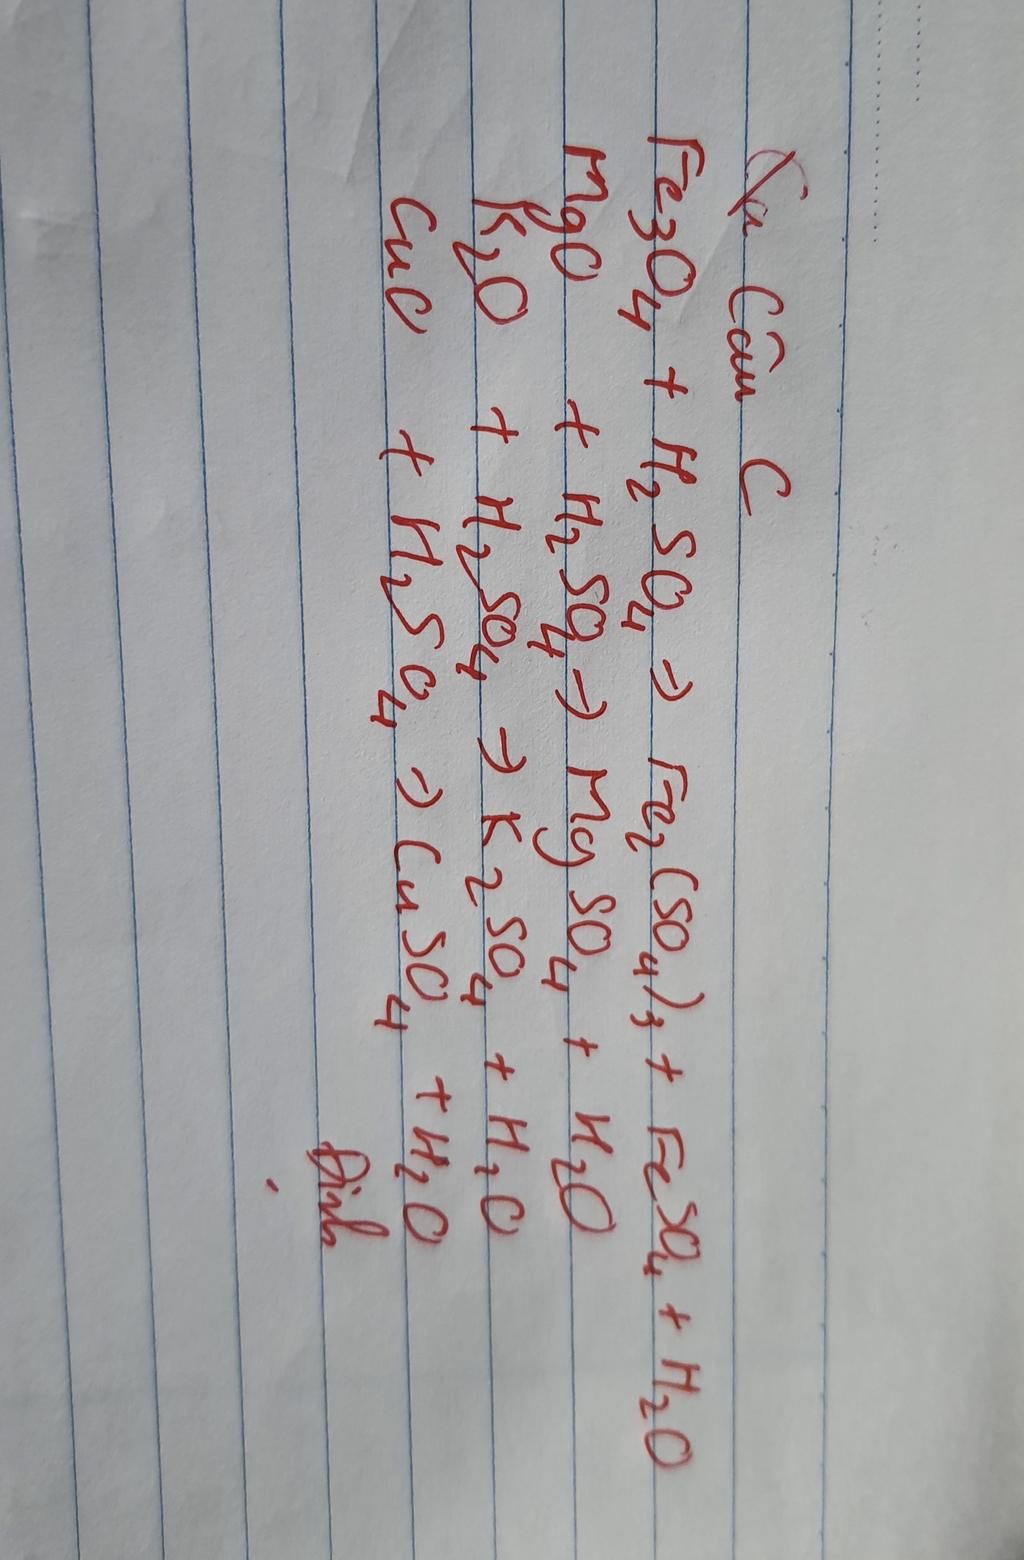 Câu C
Fe3O4 + H2SO4 → Fe2(SO4)3 + FeSO4 + H2O
MgO + H2SO4 → MgSO4 + H2O
K2O + H2SO4 → K2SO4 + H2O
CuO + H2SO4 → CuSO4 + H2O